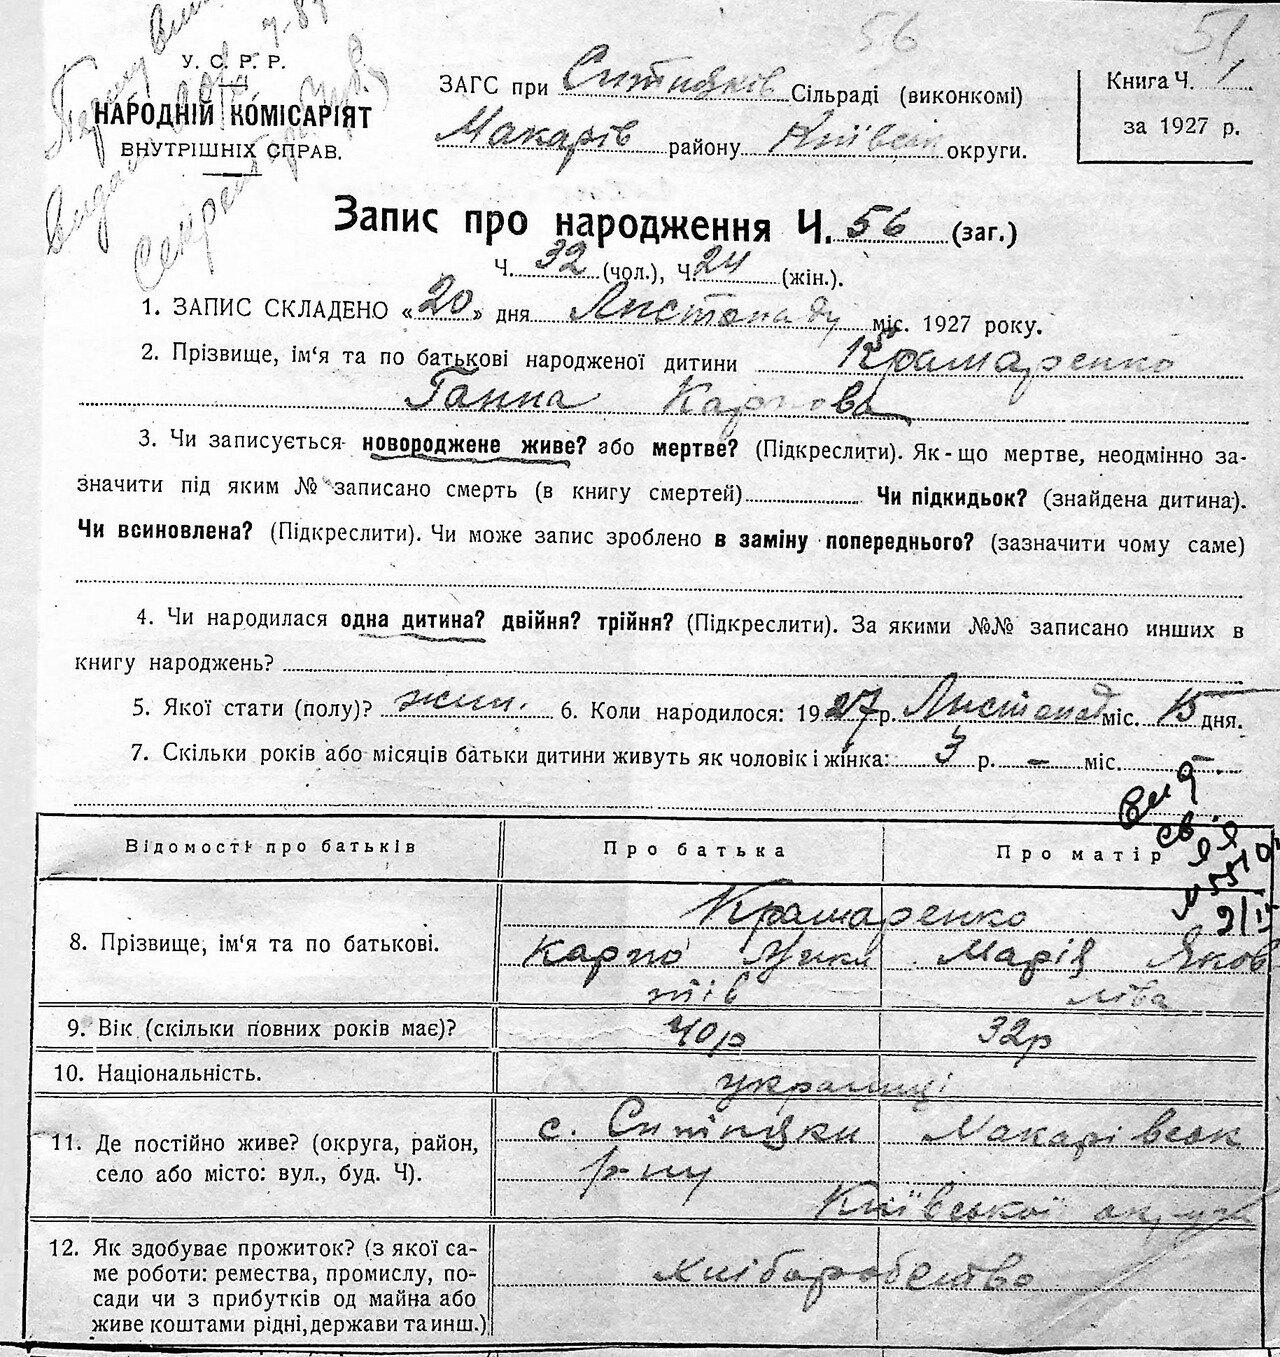 56
51
У. С. Р. Р.
НАРОДНІЙ КОМІСАРІЯТ
ВНУТРІШНІХ СПРАВ.
ЗАГС при Ситняків Сільраді (виконкомі)
Макарів району Київськ округи.
Книга Ч. 1
за 1927 р.
Запис про народження Ч. 56 (заг.)
Ч. 32 (чол.), Ч. 24 (жін.).
1. ЗАПИС СКЛАДЕНО «20» дня Листопаду міс. 1927 року.
2. Прізвище, ім'я та по батькові народженої дитини Крамаренко
Ганна Карпова
3. Чи записується новороджене живе? або мертве? (Підкреслити). Як-що мертве, неодмінно за-
значити під яким № записано смерть (в книгу смертей) Чи підкидьок? (знайдена дитина).
Чи всиновлена? (Підкреслити). Чи може запис зроблено в заміну попереднього? (зазначити чому саме)
4. Чи народилася одна дитина? двійня? трійня? (Підкреслити). За якими №№ записано инших в
книгу народжень?
5. Якої стати (полу)? жин. 6. Коли народилося: 1927 р. Листопад міс. 15 дня.
7. Скільки років або місяців батьки дитини живуть як чоловік і жінка: 3 р. — міс.
Відомості про батьків Про батька Про матір
8. Прізвище, ім'я та по батькові.
Крамаренко
Карпо Мики Марія Яков
тів лівa
9. Вік (скільки повних років має)? 40р 32р
10. Національність. українці
11. Де постійно живе? (округа, район,
село або місто: вул., буд. Ч).
с. Ситняки Макарівськ
р-ну
Київської округи
12. Як здобуває прожиток? (з якої са-
ме роботи: ремества, промислу, по-
сади чи з прибутків од майна або
живе коштами рідні, держави та инш.)
хліборобство